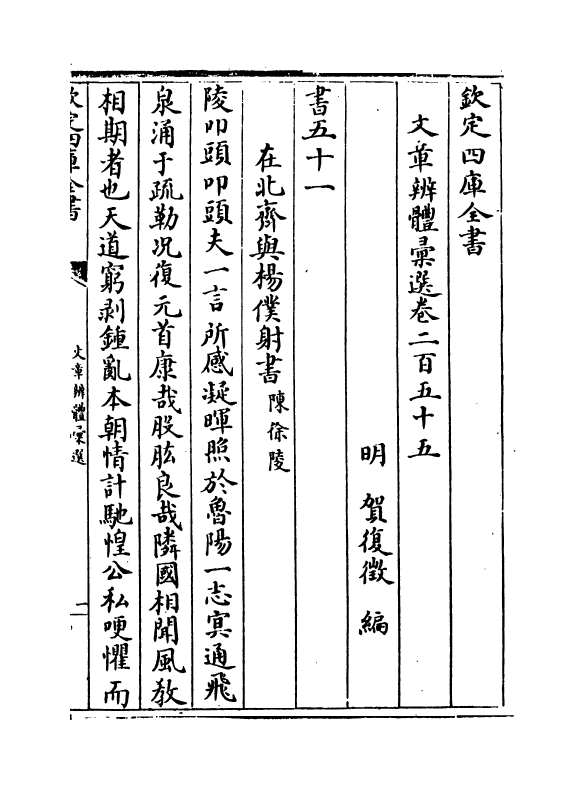 欽定四庫全書
文章辨體彙選卷二百五十五
明 賀復徵 編
書五十一
在北齊與楊僕射書 陳徐陵
陵叩頭叩頭夫一言所感凝暉照於魯陽一志冥通飛
泉涌于疏勒况復元首康哉股肱良哉隣國相聞風敎
相期者也天道窮剥鍾亂本朝情計馳惶公私哽懼而
欽定四庫全書
文章辨體彙選